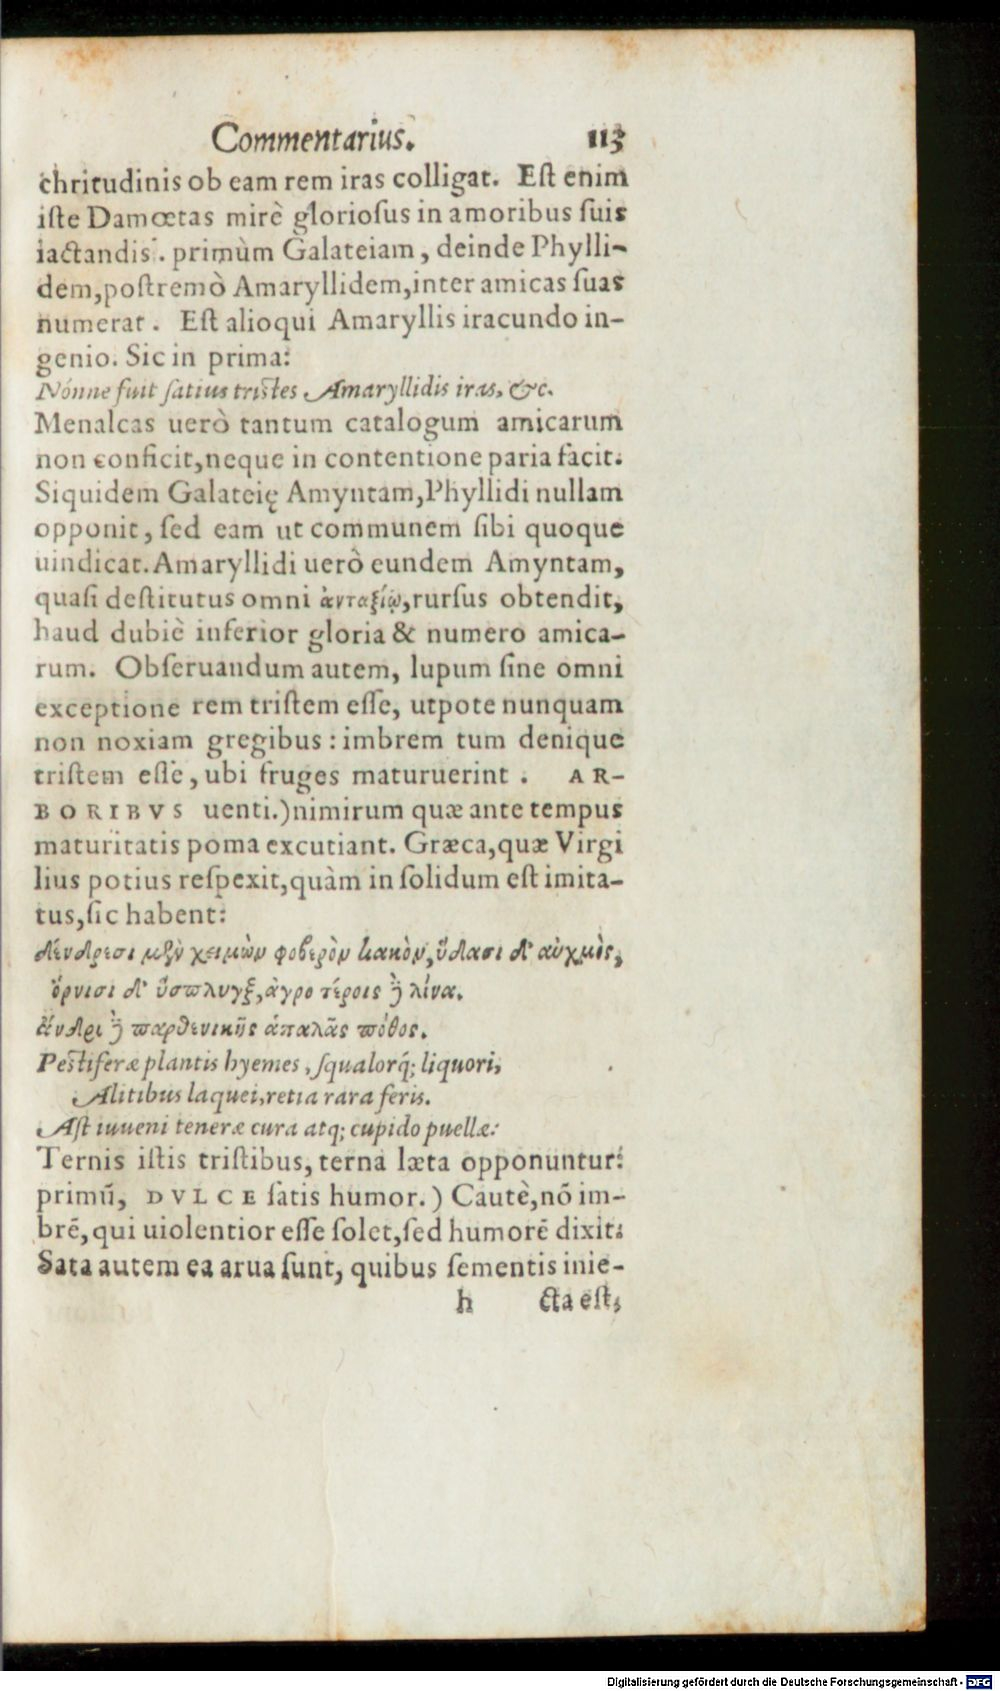 Commentarius. 113
chritudinis ob eam rem iras colligat. Est enim
iste Damœtas mirè gloriosus in amoribus suis
iactandis. primùm Galateiam, deinde Phylli-
dem, postremò Amaryllidem, inter amicas suas
numerat. Est alioqui Amaryllis iracundo in-
genio. Sic in prima:
Nónne fuit satius tristes Amaryllidis iras, &c.
Menalcas uerò tantum catalogum amicarum
non conficit, neque in contentione paria facit.
Siquidem Galateię Amyntam, Phyllidi nullam
opponit, sed eam ut communem sibi quoque
uindicat. Amaryllidi uerò eundem Amyntam,
quasi destitutus omni ἀνταξίῳ, rursus obtendit,
haud dubiè inferior gloria & numero amica-
rum. Obseruandum autem, lupum sine omni
exceptione rem tristem esse, utpote nunquam
non noxiam gregibus: imbrem tum denique
tristem esse, ubi fruges maturuerint. AR-
BORIBVS uenti.) nimirum quæ ante tempus
maturitatis poma excutiant. Græca, quæ Virgi
lius potius respexit, quàm in solidum est imita-
tus, sic habent:
δένδρεσι μὲν χειμὼν φοβερὸν κακὸν, ὕδασι δ' αὐχμὸς,
ὄρνισι δ' ὕσπλυγξ, ἀγροτέροις ἢ λίνα.
ἀνδρὶ ἢ παρθενικῆς ἁπαλᾶς πόθος.
Pestiferæ plantis hyemes, squalorq́; liquori,
Alitibus laquei, retia rara feris.
Ast iuueni teneræ cura atq; cupido puellæ:
Ternis istis tristibus, terna læta opponuntur:
primū, DVLCE satis humor.) Cautè, nō im-
brē, qui uiolentior esse solet, sed humorē dixit:
Sata autem ea arua sunt, quibus sementis inie-
h cta est,
Digitalisierung gefördert durch die Deutsche Forschungsgemeinschaft - DFG